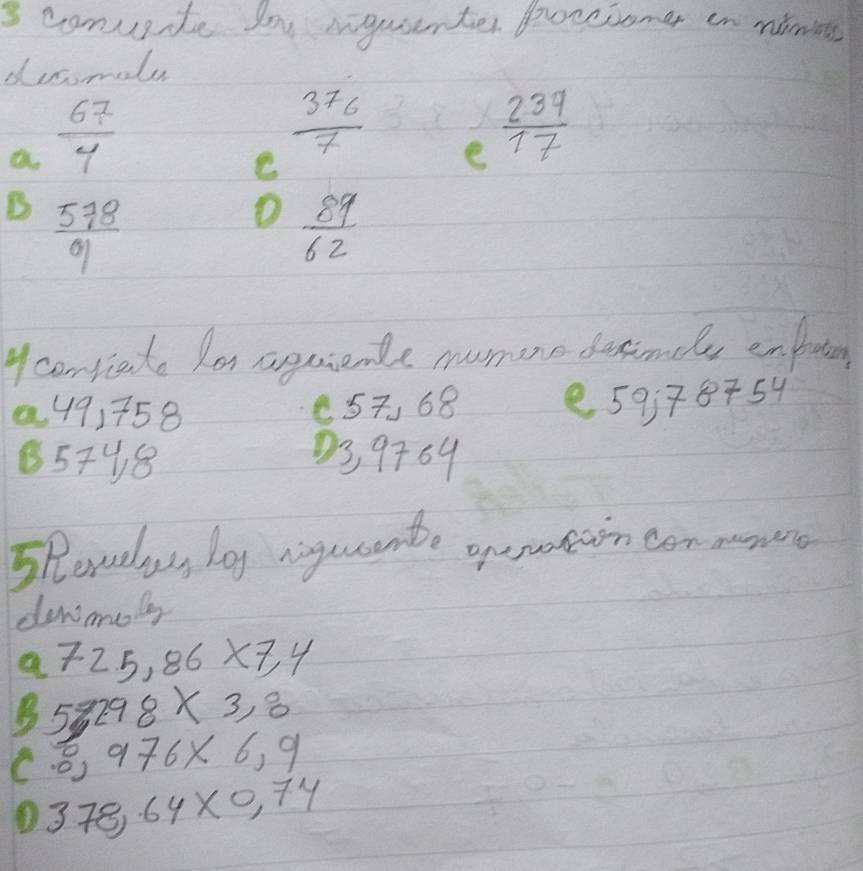 3 convierte los siguientes fracciones en números
decimales
a 67/4 c 376/7 e 239/17
B 578/9 D 89/62
4 convierte los siguiente numero decimales en
a 49,758 c 57,68 e 59,78754
B 574,8 D 3,9764
5 Resuelves los siguiente operación con numero
decimales
a 725,86 x 7,4
B 298 x 3,8
c 8,976 x 6,9
D 378,64 x 0,74